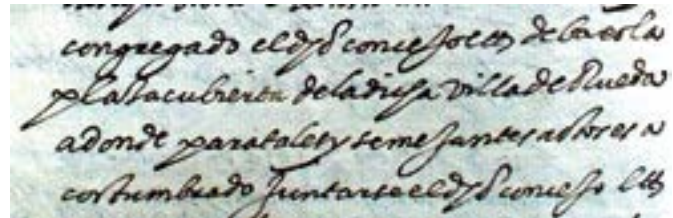 congregado el dho concejo en de la
plaça cubierta de la dicha villa de Rueda
adonde para tales y semejantes actores a
costumbrado juntarse el dho concejo